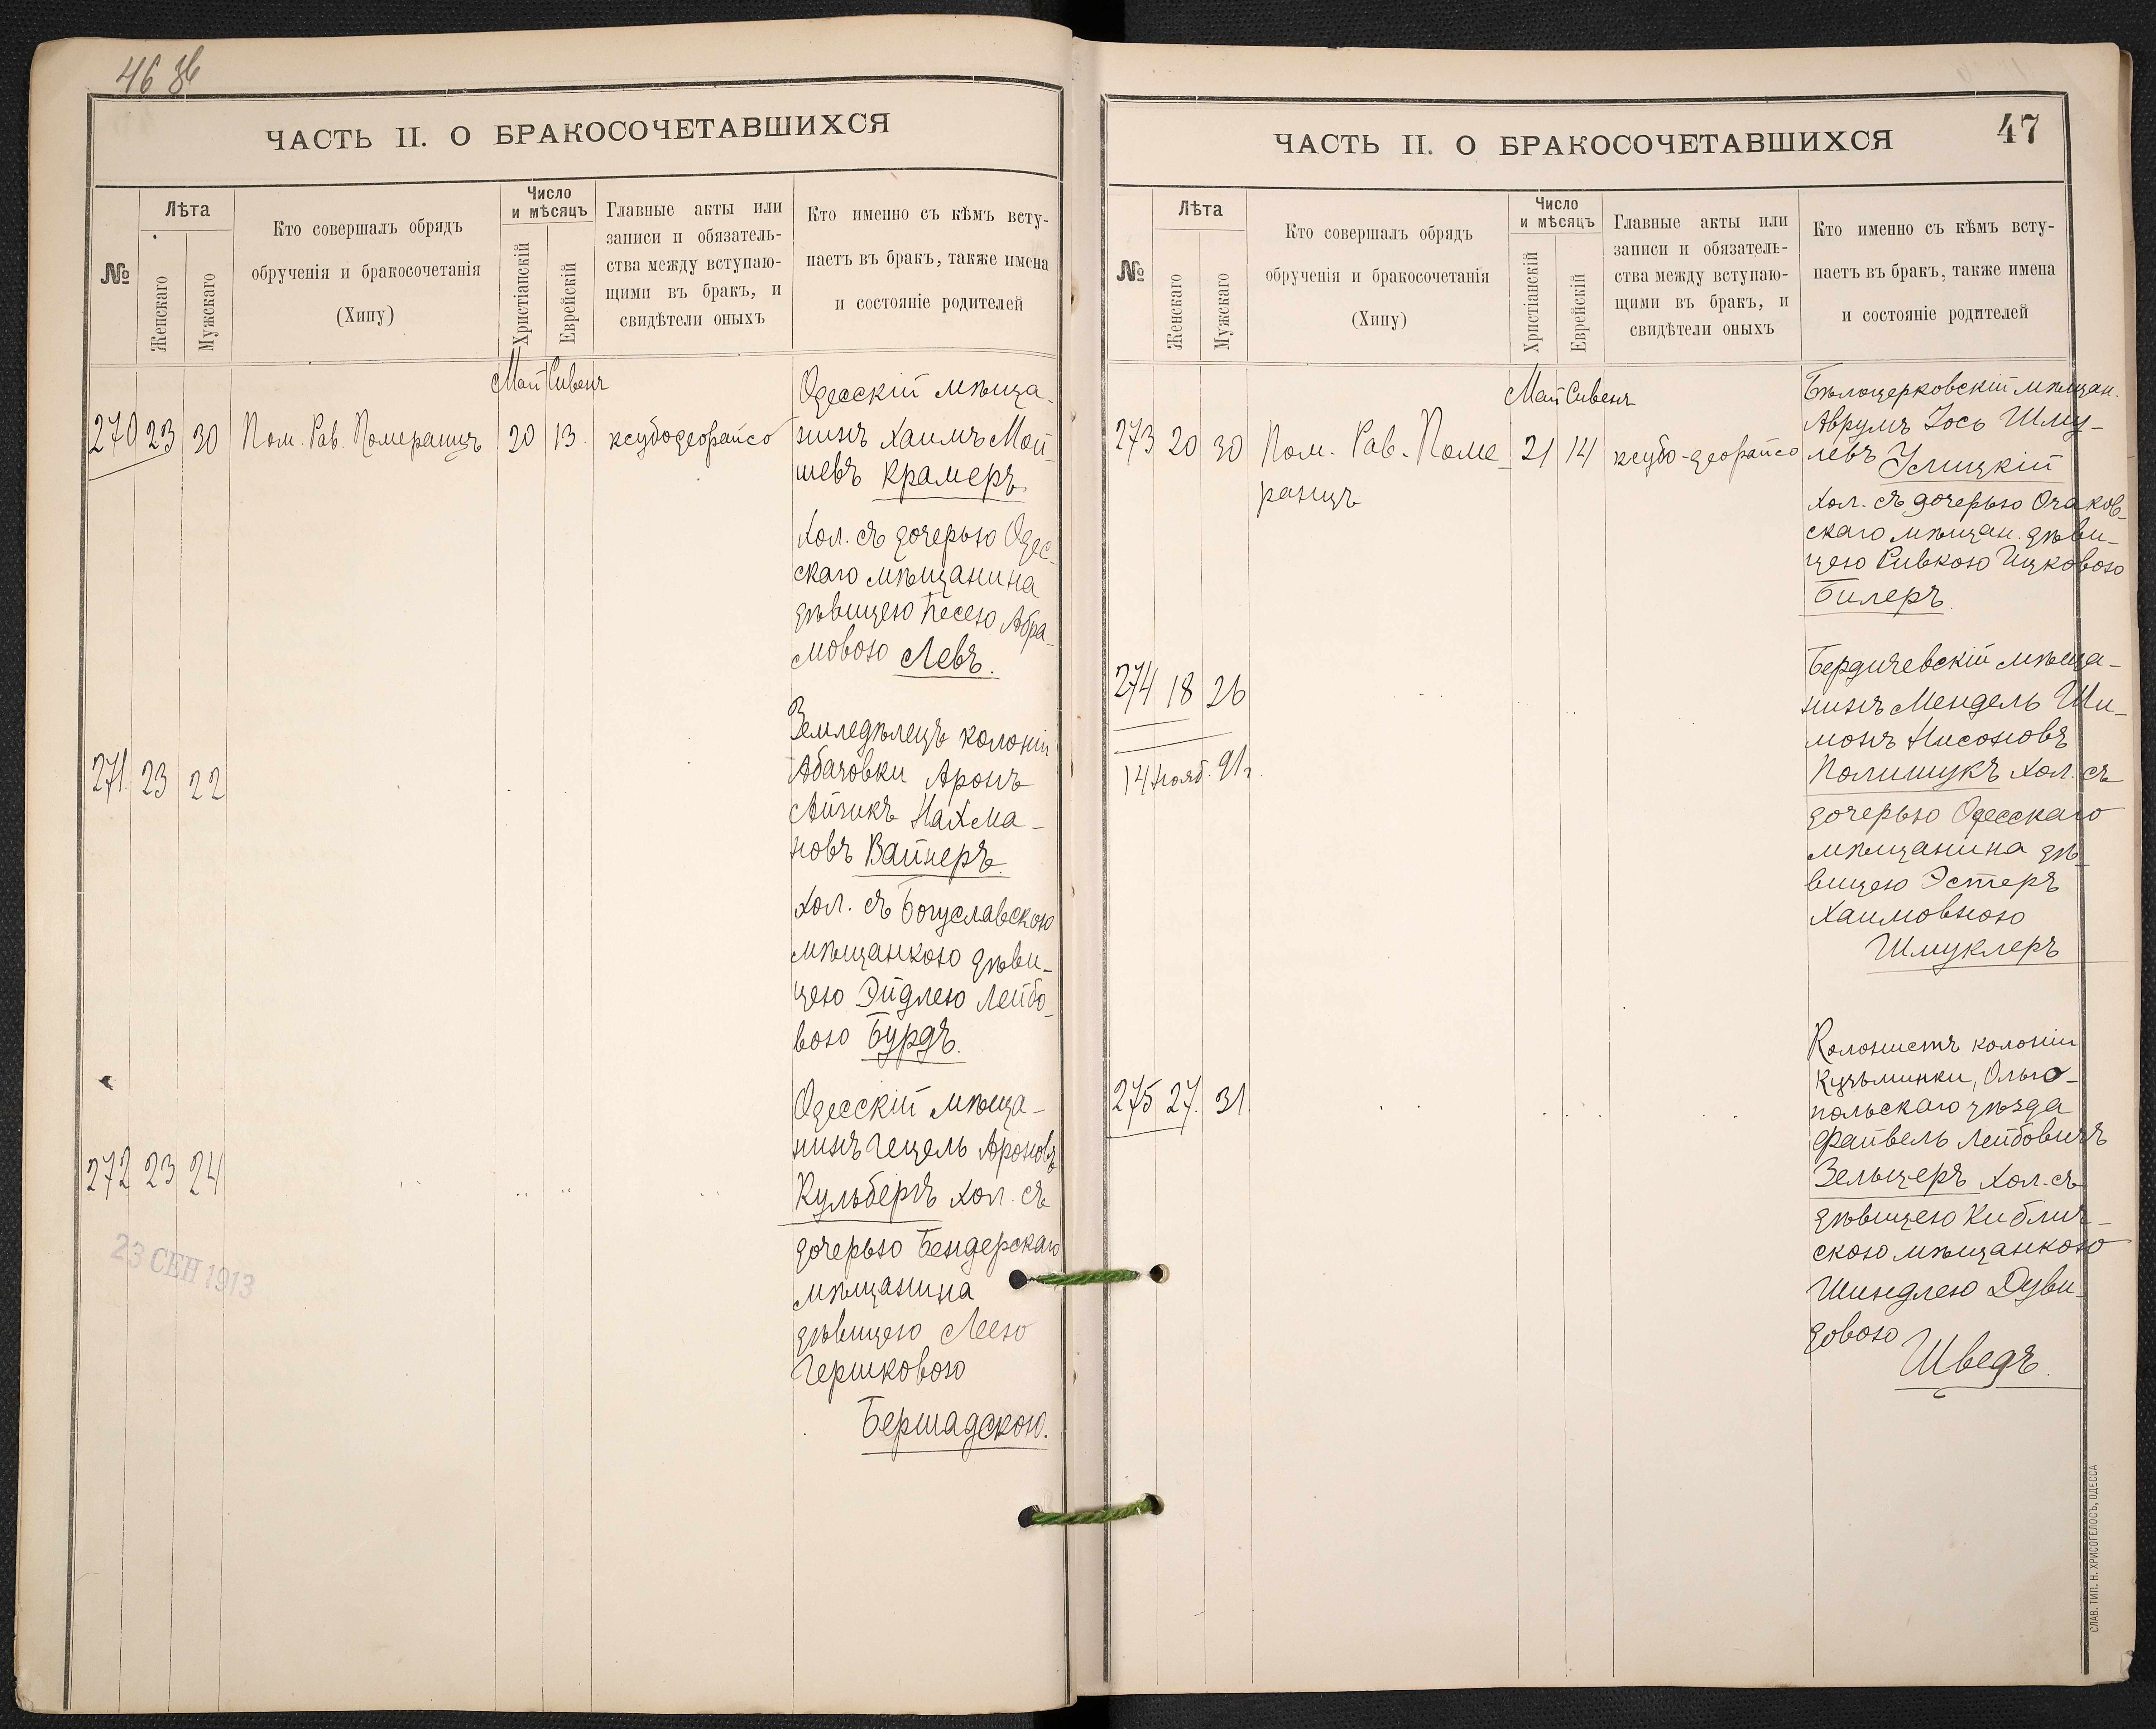 46 об
ЧАСТЬ II. О БРАКОСОЧЕТАВШИХСЯ
№
Лѣта
Женскаго
Мужскаго
Кто совершалъ обрядъ
обрученія и бракосочетанія
(Хипу)
Число
и мѣсяцъ
Христіанскій
Еврейскій
Главные акты или
записи и обязатель-
ства между вступаю-
щими въ бракъ, и
свидѣтели оныхъ
Кто именно съ кѣмъ всту-
паетъ въ бракъ, также имена
и состояніе родителей
Май Сивенъ
270 23 30 Пом. Рав. Померанцъ 20 13. ксубодеорайсо
Одесскій мѣща-
нинъ Хаимъ Мой-
шевъ Крамеръ.
Хол. съ дочерью Одес-
скаго мѣщанина
дѣвицею Песею Абра-
мовою Левъ.
271. 23 22
Земледѣлецъ колоніи
Абазовки Аронъ
Айзикъ Нахма-
новъ Вайнеръ.
Хол. съ Богуславскою
мѣщанкою дѣви-
цею Эйдлею Лейбо-
вою Бурдъ.
272 23 24
Одесскій мѣща-
нинъ Гецель Ароновъ
Кульбергъ Хол. съ
дочерью Бендерскаго
мѣщанина
дѣвицею Леею
Гершковою
Бершадскою.
23 СЕН 1913
47
ЧАСТЬ II. О БРАКОСОЧЕТАВШИХСЯ
№
Лѣта
Женскаго
Мужскаго
Кто совершалъ обрядъ
обрученія и бракосочетанія
(Хипу)
Число
и мѣсяцъ
Христіанскій
Еврейскій
Главные акты или
записи и обязатель-
ства между вступаю-
щими въ бракъ, и
свидѣтели оныхъ
Кто именно съ кѣмъ всту-
паетъ въ бракъ, также имена
и состояніе родителей
Май Сивенъ
273 20 30 Пом. Рав. Поме-
ранцъ
21 14 ксубо-деорайсо
Бѣлоцерковскій мѣщан.
Аврумъ Іось Шму-
левъ Услицкій
Хол. съ дочерью Очаков-
скаго мѣщан. дѣви-
цею Ривкою Ицковою
Билеръ.
274 18 26
14 Нояб. 91 г.
Бердичевскій мѣща-
нинъ Мендель Ши-
монъ Нисоновъ
Полищукъ Хол. съ
дочерью Одесскаго
мѣщанина дѣ-
вицею Эстеръ
Хаимовною
Шмуклеръ
275 27. 31.
Колонистъ колоніи
Кузьминки, Ольго-
польскаго уѣзда
Файвель Лейбовичъ
Зельцеръ Хол. съ
дѣвицею Киблич-
скою мѣщанкою
Шиндлею Дуви-
довою
Шведъ.
СЛАВ. ТИП. Н. ХРИСОГЕЛОСЪ, ОДЕССА